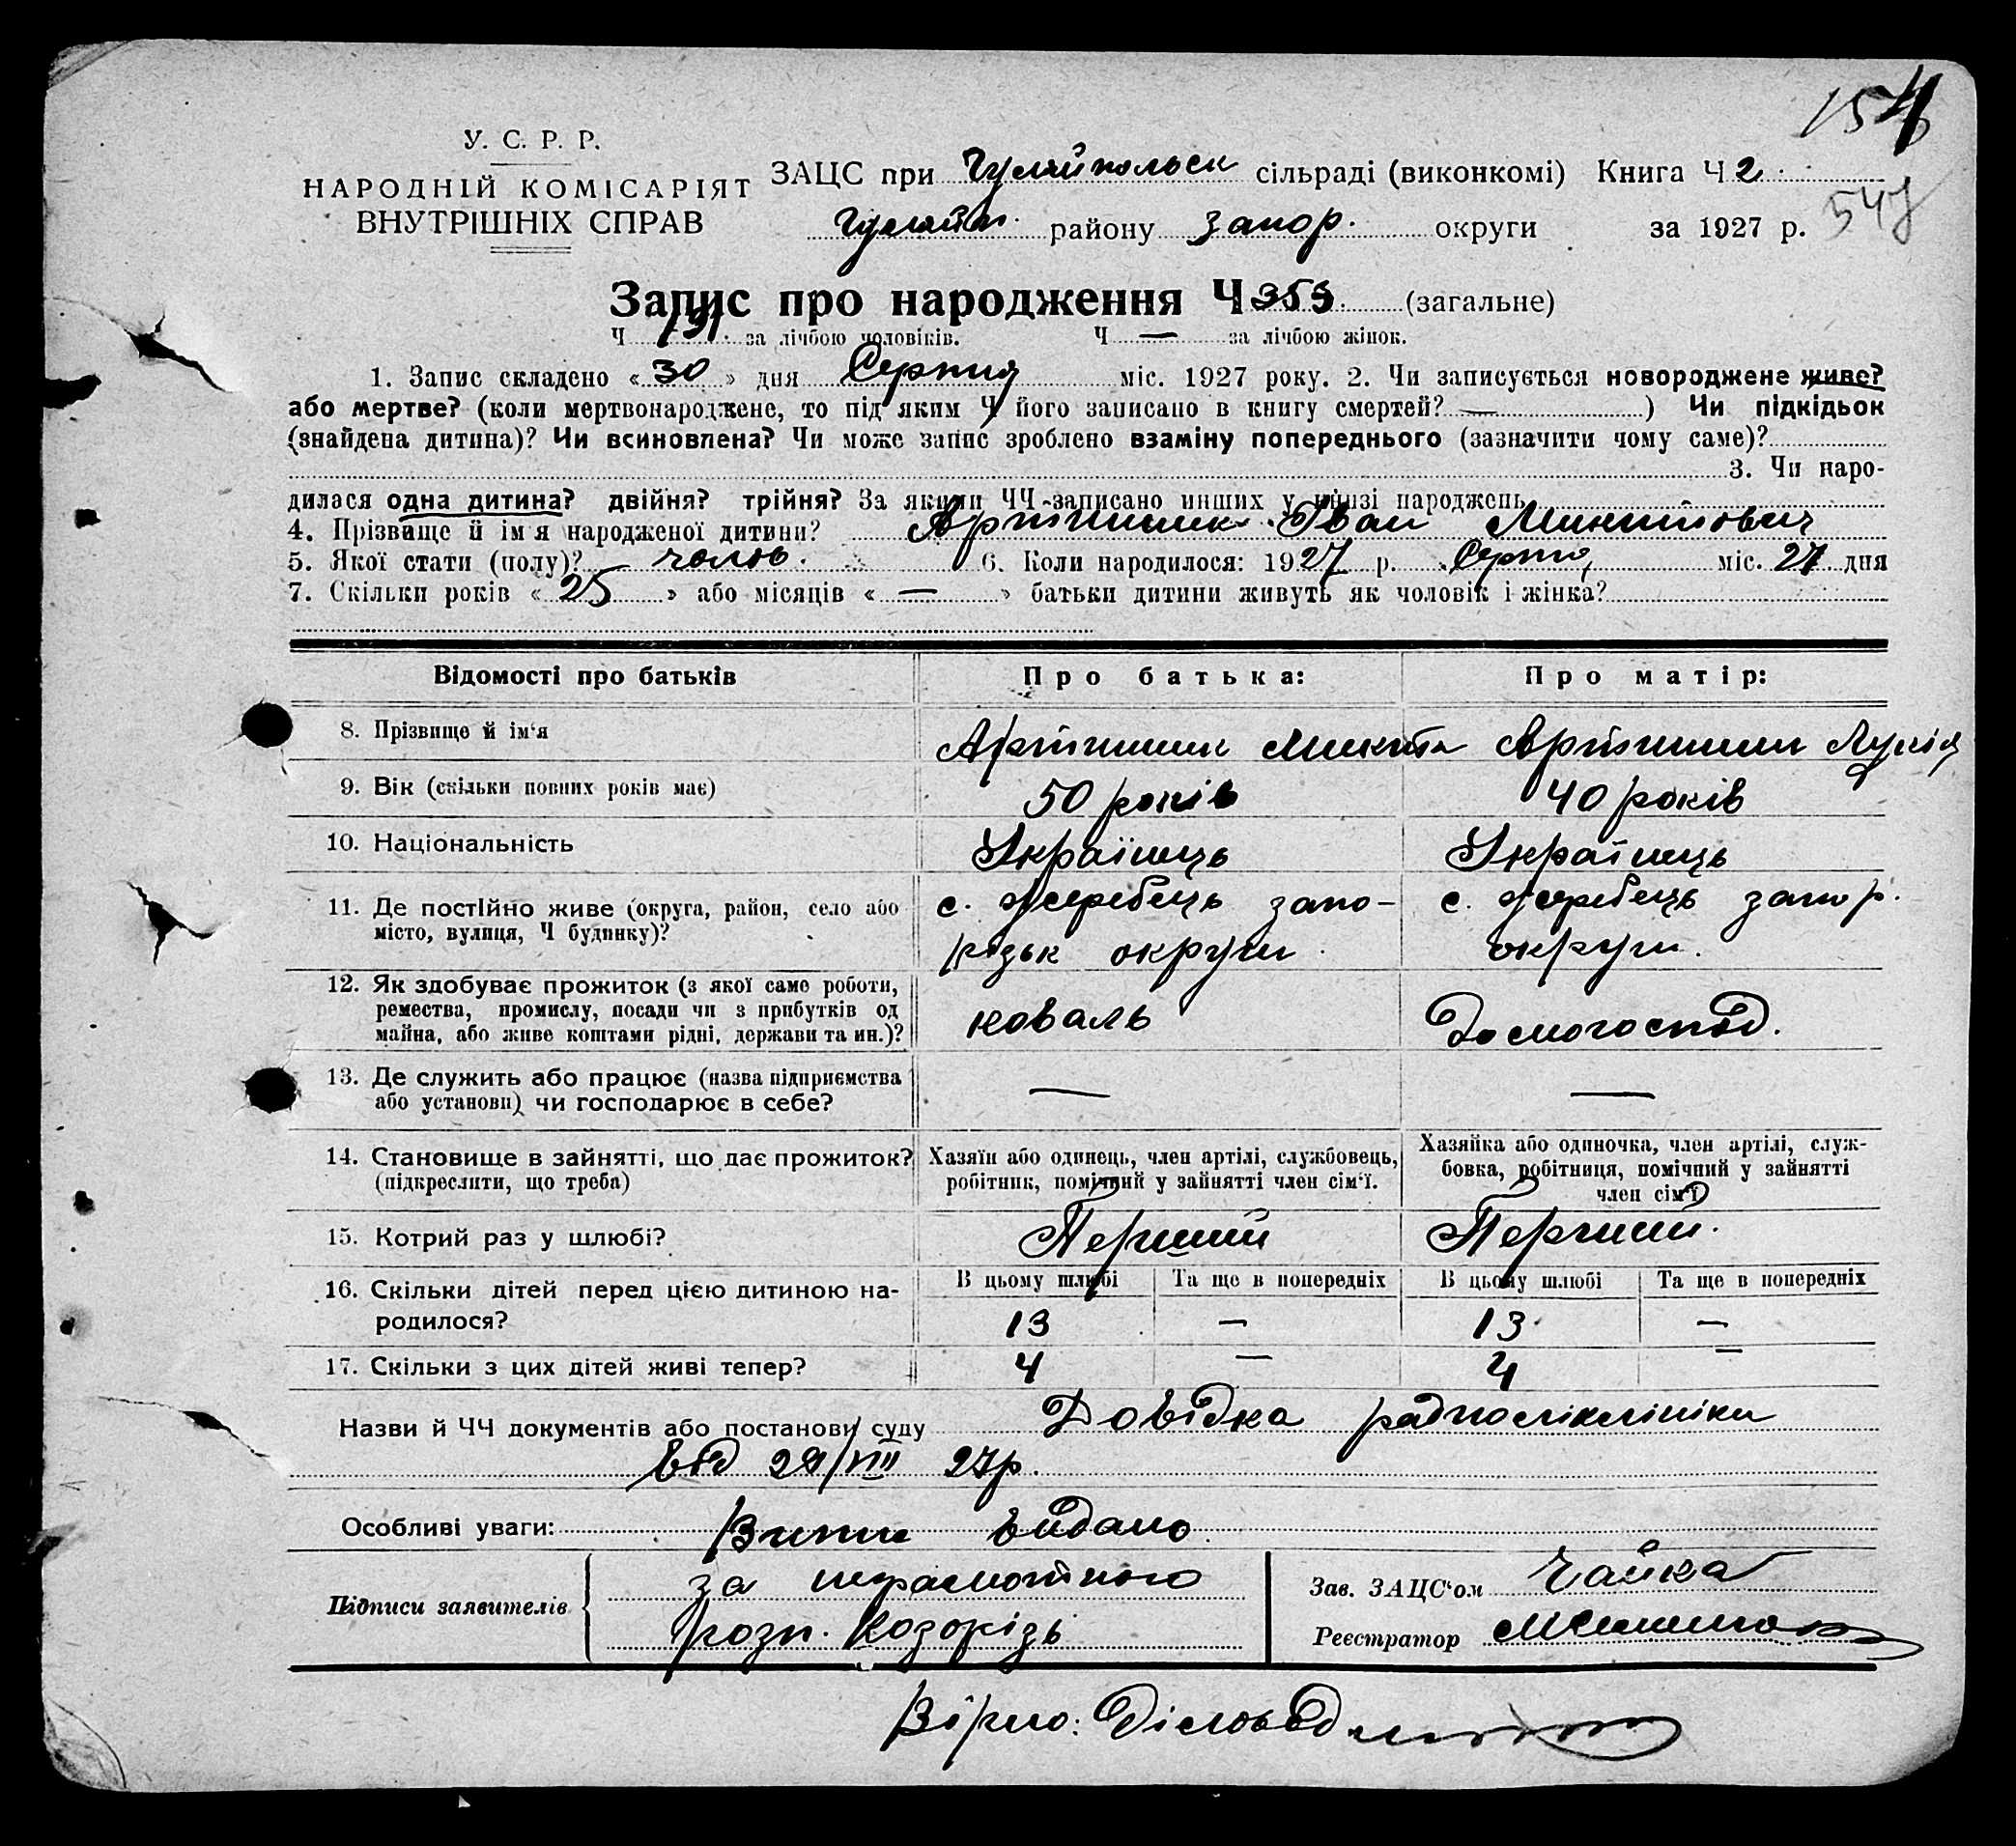 154
У. С. Р. Р.
НАРОДНІЙ КОМІСАРІЯТ
ВНУТРІШНІХ СПРАВ
547
ЗАЦС при Гуляйпольськ сільраді (виконкомі) Книга Ч 2
Гуляйп. району Запор. округи за 1927 р.
Запис про народження Ч 353 (загальне)
Ч 191 за лічбою чоловіків. Ч — за лічбою жінок.
1. Запис складено « 30 » дня Серпня міс. 1927 року. 2. Чи записується новороджене живе?
або мертве? (коли мертвонароджене, то під яким Ч його записано в книгу смертей? — ) Чи підкідьок
(знайдена дитина)? Чи всиновлена? Чи може запис зроблено взаміну попереднього (зазначити чому саме)?
3. Чи наро-
дилася одна дитина? двійня? трійня? За якими ЧЧ записано инших у книзі народжень
4. Прізвище й ім'я народженої дитини? Іван Микитович
5. Якої стати (полу)? чолов. 6. Коли народилося: 1927 р. Серпня міс. 27 дня
7. Скільки років « 25 » або місяців « — » батьки дитини живуть як чоловік і жінка?
Відомості про батьків Про батька: Про матір:
8. Прізвище й ім'я Микита
9. Вік (скільки повних років має) 50 років 40 років
10. Національність Українець Українець
11. Де постійно живе (округа, район, село або с. Жеребець запо- с. Жеребець запор.
місто, вулиця, Ч будинку)? різьк округи округи.
12. Як здобуває прожиток (з якої саме роботи,
ремества, промислу, посади чи з прибутків од коваль Домогоспод.
майна, або живе коштами рідні, держави та ин.)?
13. Де служить або працює (назва підприємства — —
або установи) чи господарює в себе?
14. Становище в зайнятті, що дає прожиток?
(підкреслити, що треба)
Хазяїн або одинець, член артілі, службовець,
робітник, помічний у зайнятті член сім'ї.
Хазяйка або одиночка, член артілі, служ-
бовка, робітниця, помічний у зайнятті
член сім'ї
15. Котрий раз у шлюбі? Перший Перший.
16. Скільки дітей перед цією дитиною на- В цьому шлюбі Та ще в попередніх В цьому шлюбі Та ще в попередніх
родилося? 13 — 13 —
17. Скільки з цих дітей живі тепер? 4 — 4 —
Назви й ЧЧ документів або постанови суду Довідка радполіклініки
від 29/VIII 27р.
Особливі уваги: Випис видано
Підписи заявителів за неграмотного
розп. Козоріз
Зав. ЗАЦС'ом Чайка
Реєстратор
Вірно: Діловод